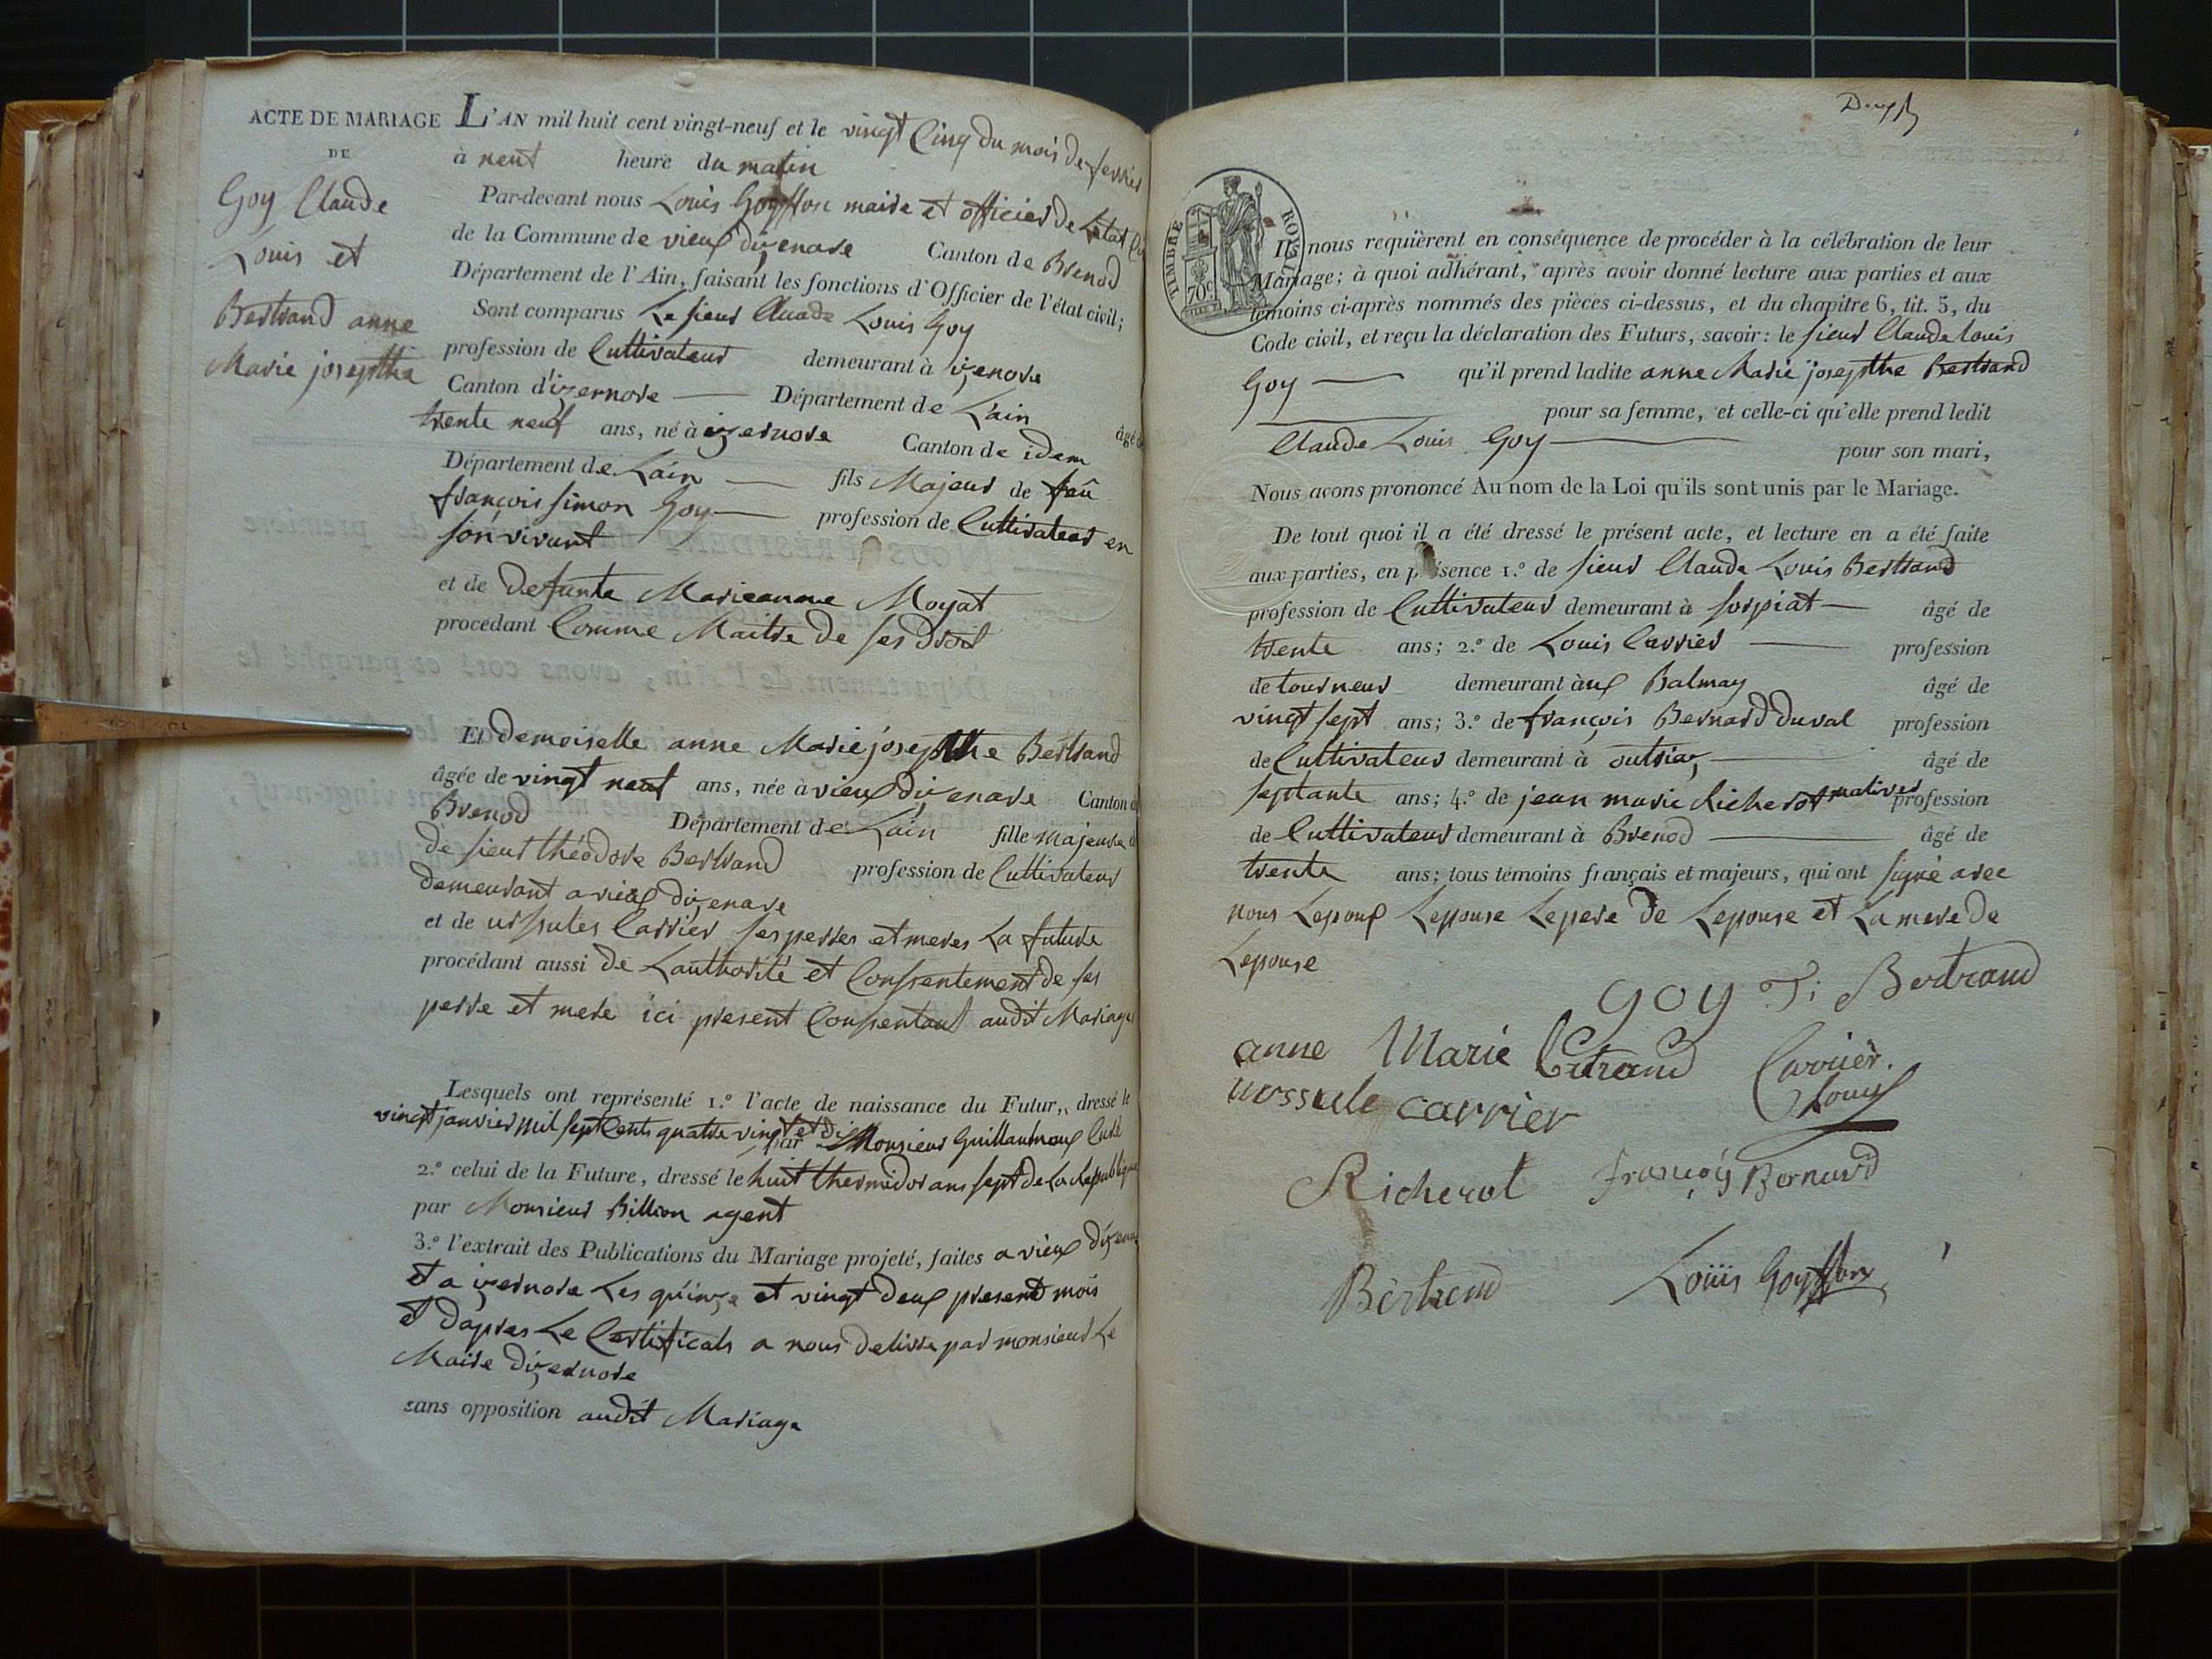 ACTE DE MARIAGE
DE
Goy Claude
Louis et
Bertrand anne
Marie josepthe
L'AN mil huit cent vingt-neuf et le vingt Cinq du mois de fevrier
à neuf heure du matin
Par-devant nous Louis Goyffon maire et officier de Létat
de la Commune de vieux dizenave Canton de Brenod
Département de l'Ain, faisant les fonctions d'Officier de l'état civil;
Sont comparus Le sieur Claude Louis Goy
profession de Cultivateur demeurant à izenove
Canton d'izernove Département de L'ain
âgé de
trente neuf ans, né à izernove Canton de idem
Département de Lain fils Majeur de feû
françois simon Goy profession de Cultivateur en
son vivant
et de defunte Marieanne Moyat
procédant Comme Maitre de ses droit
Et demoiselle anne Marie josepthe Bertrand
âgée de vingt neuf ans, née à vieux dizenave Canton de
Brenod Département de Lain fille majeure de
de sieur théodore Bertrand profession de Cultivateur
demeurant a vieux dizenave
et de ursules Carrier ses perres et meres La future
procédant aussi de Lauthorité et Consentement de ses
perre et mere ici present Consentant audit Mariage
Lesquels ont représenté 1.º l'acte de naissance du Futur, dressé le
vingt janvier mil sept Cents quatre vingt et dix par Monsieur Guillaumoux Curé
2.º celui de la Future, dressé le huit thermidor ans sept de La Republique
par Monsieur Billion agent
3.º l'extrait des Publications du Mariage projeté, faites a vieux dizenave
et a izernove Les quinze et vingt deux present mois
et dapres Le Certificats a nous delivre par monsieur Le
Maire dizernove
sans opposition audit Mariage
TIMBRE ROYAL
70c
Ils nous requièrent en conséquence de procéder à la célébration de leur
Mariage; à quoi adhérant, après avoir donné lecture aux parties et aux
témoins ci-après nommés des pièces ci-dessus, et du chapitre 6, tit. 5, du
Code civil, et reçu la déclaration des Futurs, savoir: le sieur Claude Louis
Goy qu'il prend ladite anne Marie josepthe Bertrand
pour sa femme, et celle-ci qu'elle prend ledit
Claude Louis Goy pour son mari,
Nous avons prononcé Au nom de la Loi qu'ils sont unis par le Mariage.
De tout quoi il a été dressé le présent acte, et lecture en a été faite
aux parties, en présence 1.º de sieur Claude Louis Bertrand
profession de Cultivateur demeurant à sorpiat âgé de
trente ans; 2.º de Louis Carrier profession
de tourneur demeurant àux Balmay âgé de
vingt sept ans; 3.º de françois Bernard duval profession
de Cultivateur demeurant à outriaz âgé de
septante ans; 4.º de jean marie Richerot profession
de Cultivateur demeurant à Brenod âgé de
trente ans; tous témoins français et majeurs, qui ont signé avec
nous Lepoux Lepouse Lepere de Lepouse et La mere de
Lepouse
goy T; Bertrand
anne Marie Bertrand Carrier.
urssule carrier Louis
Richerot François Bernard
Bertrand Loüis Goyffon